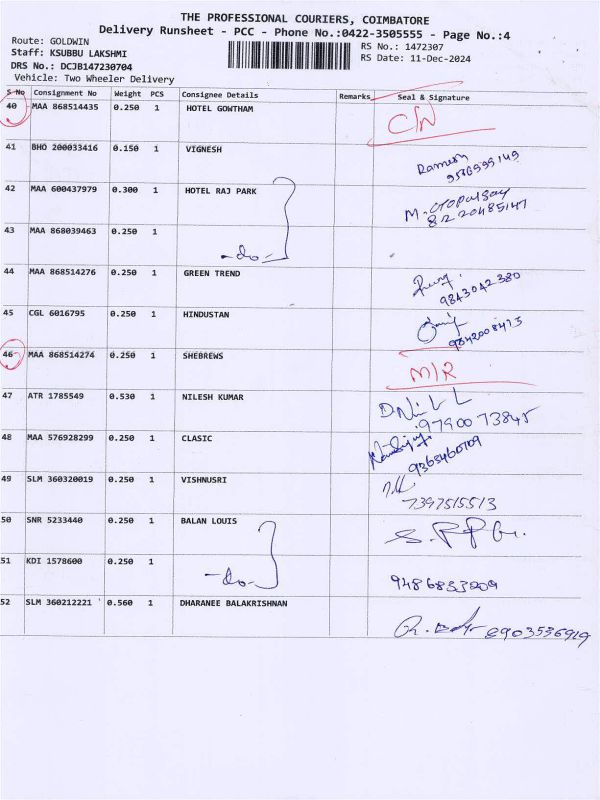 THE PROFESSIONAL COURIERS, COIMBATORE
Delivery Runsheet - PCC - Phone No.:0422-3505555 - Page No.:4
Route: GOLDWIN
Staff: KSUBBU LAKSHMI
DRS No.: DCJB147230704
Vehicle: Two Wheeler Delivery
RS No.: 1472307
RS Date: 11-Dec-2024
S No Consignment No Weight PCS Consignee Details Remarks Seal & Signature
40 MAA 868514435 0.250 1 HOTEL GOWTHAM C/N
41 BHO 200033416 0.150 1 VIGNESH Ramesh
42 MAA 600437979 0.300 1 HOTEL RAJ PARK M. Gopalsay
8220485147
43 MAA 868039463 0.250 1 -do-
44 MAA 868514276 0.250 1 GREEN TREND
9843042380
45 CGL 6016795 0.250 1 HINDUSTAN
9842008473
46 MAA 868514274 0.250 1 SHEBREWS M/R
47 ATR 1785549 0.530 1 NILESH KUMAR
9790073845
48 MAA 576928299 0.250 1 CLASIC
49 SLM 360320019 0.250 1 VISHNUSRI
7397515513
50 SNR 5233440 0.250 1 BALAN LOUIS
51 KDI 1578600 0.250 1 -do- 9486833209
52 SLM 360212221 0.560 1 DHARANEE BALAKRISHNAN 8903536919